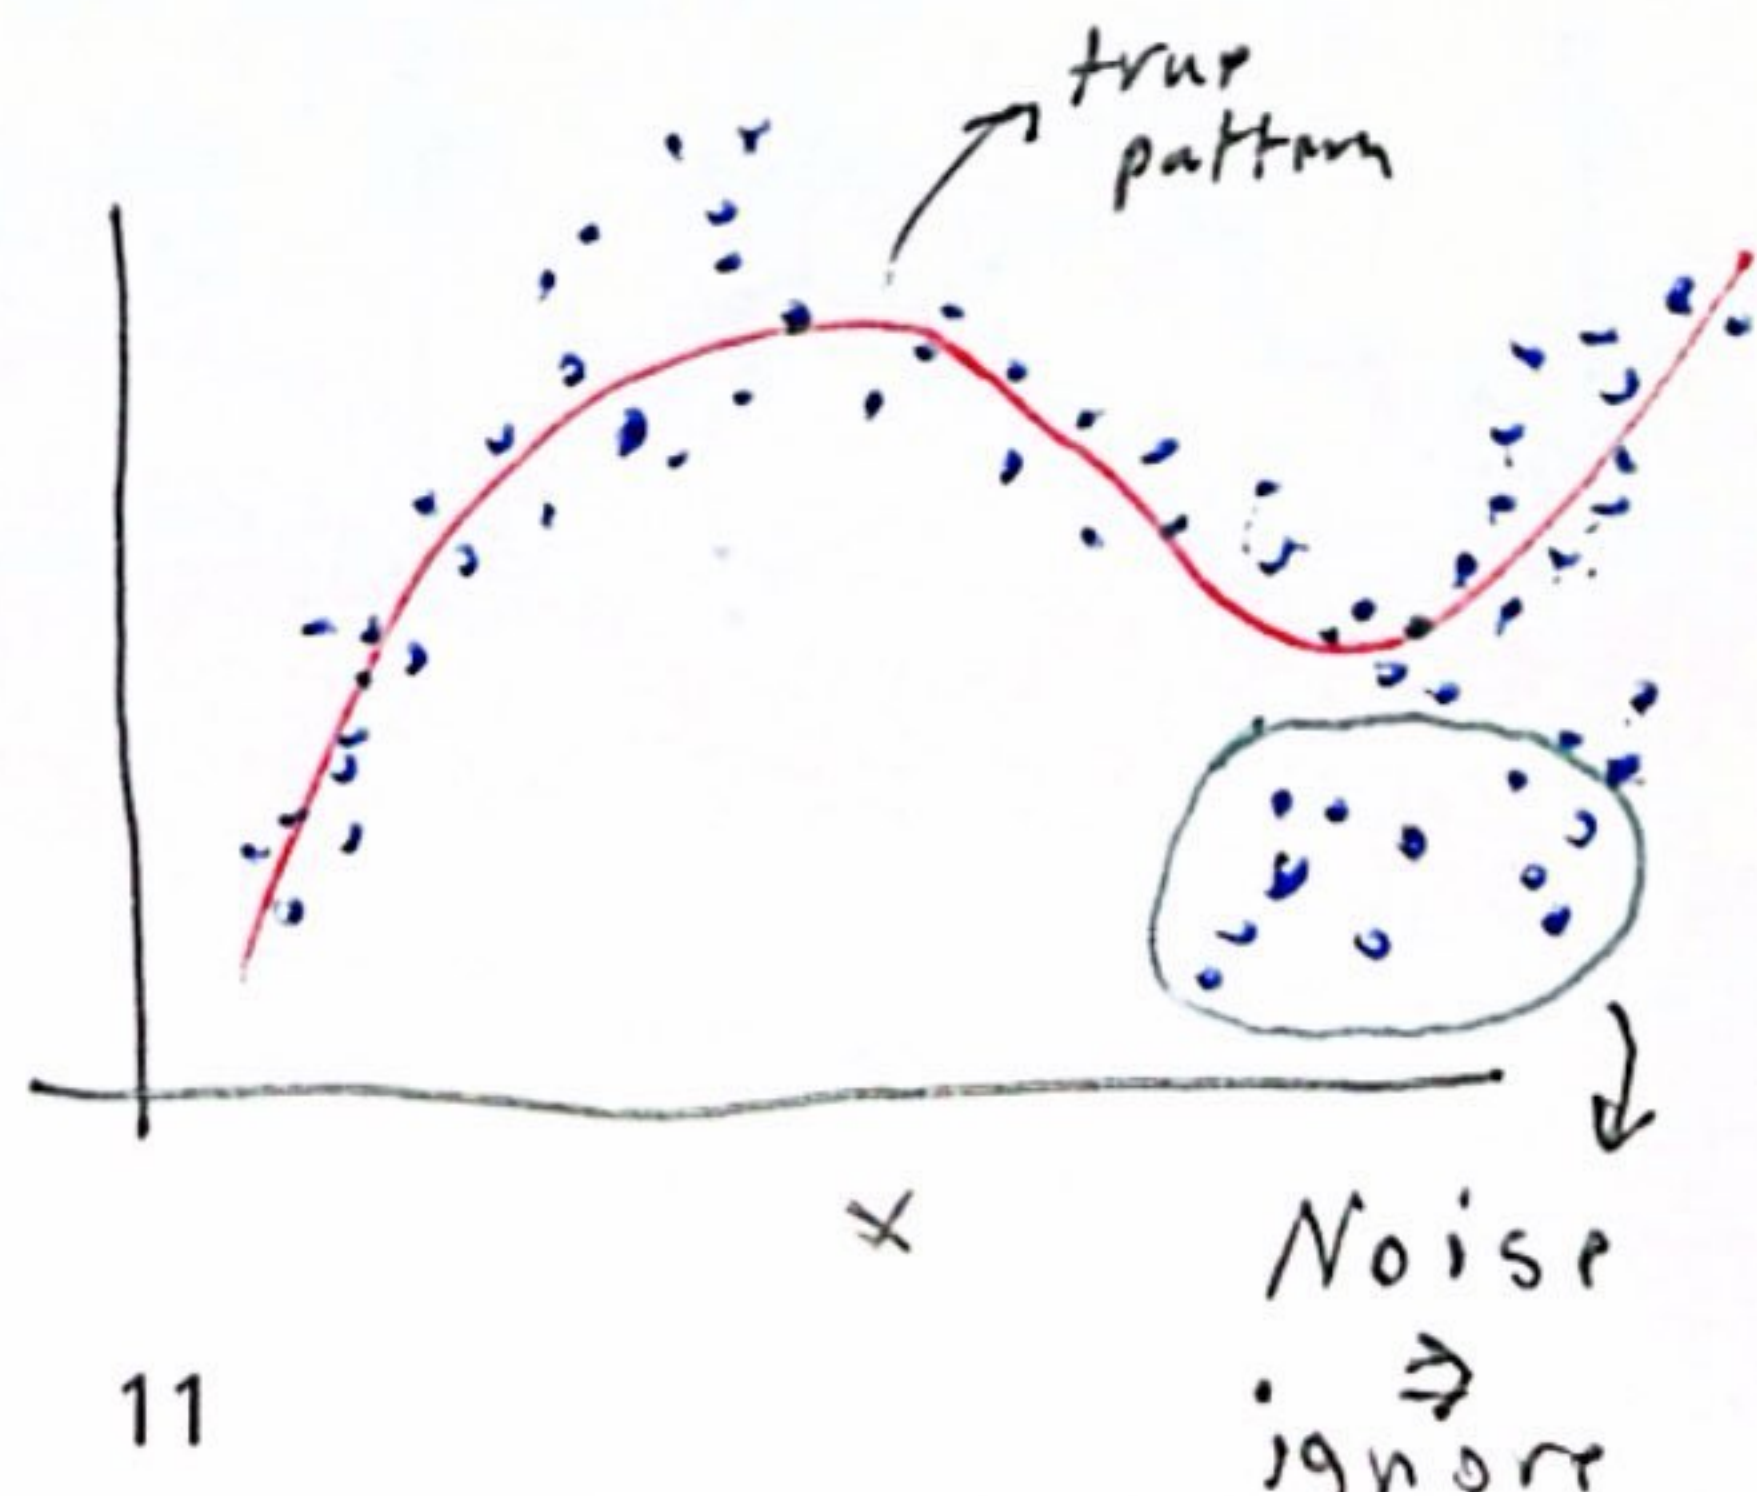 true
pattern
x
Noise
⇒
ignore
11